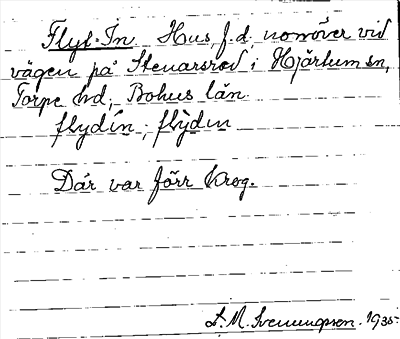 Flyt-In. Hus f.d. norröver vid
vägen på Stenarsröd i Hjärtum sn,
Torpe hd, Bohus län.
flydín, flỳdın
Där var förr krog.
S. M. Svenungsson. 1935.